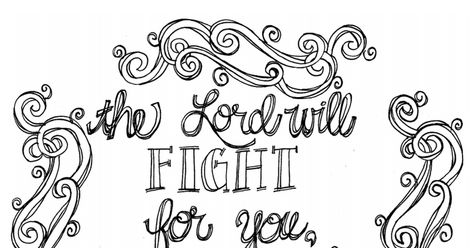 the Lord will
FIGHT
for you,